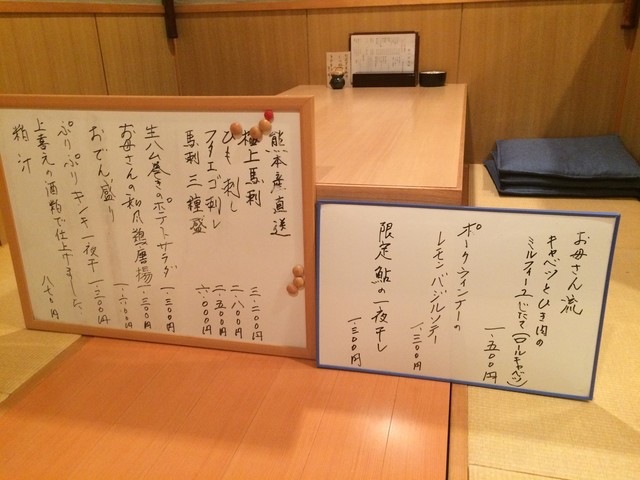 熊本産直送
極上馬刺 三・二〇〇円
ひも刺し 二・八〇〇円
フタエゴ刺し 二・五〇〇円
馬刺三種盛 六・〇〇〇円
生ハム巻きのポテトサラダ 一・三〇〇円
お母さんの和風鶏唐揚 一・六〇〇円
おでん盛り 一・二〇〇円
ぷりぷりキンキ一夜干
上喜元の酒粕で仕上げました
粕汁 八七〇円
お母さん流
キャベツとひき肉の
ミルフィーユじたて(ロールキャベツ) 一・五〇〇円
ポークウィンナーの
レモンバジルソテー 一・三〇〇円
限定 鮎の一夜干し 一・三〇〇円